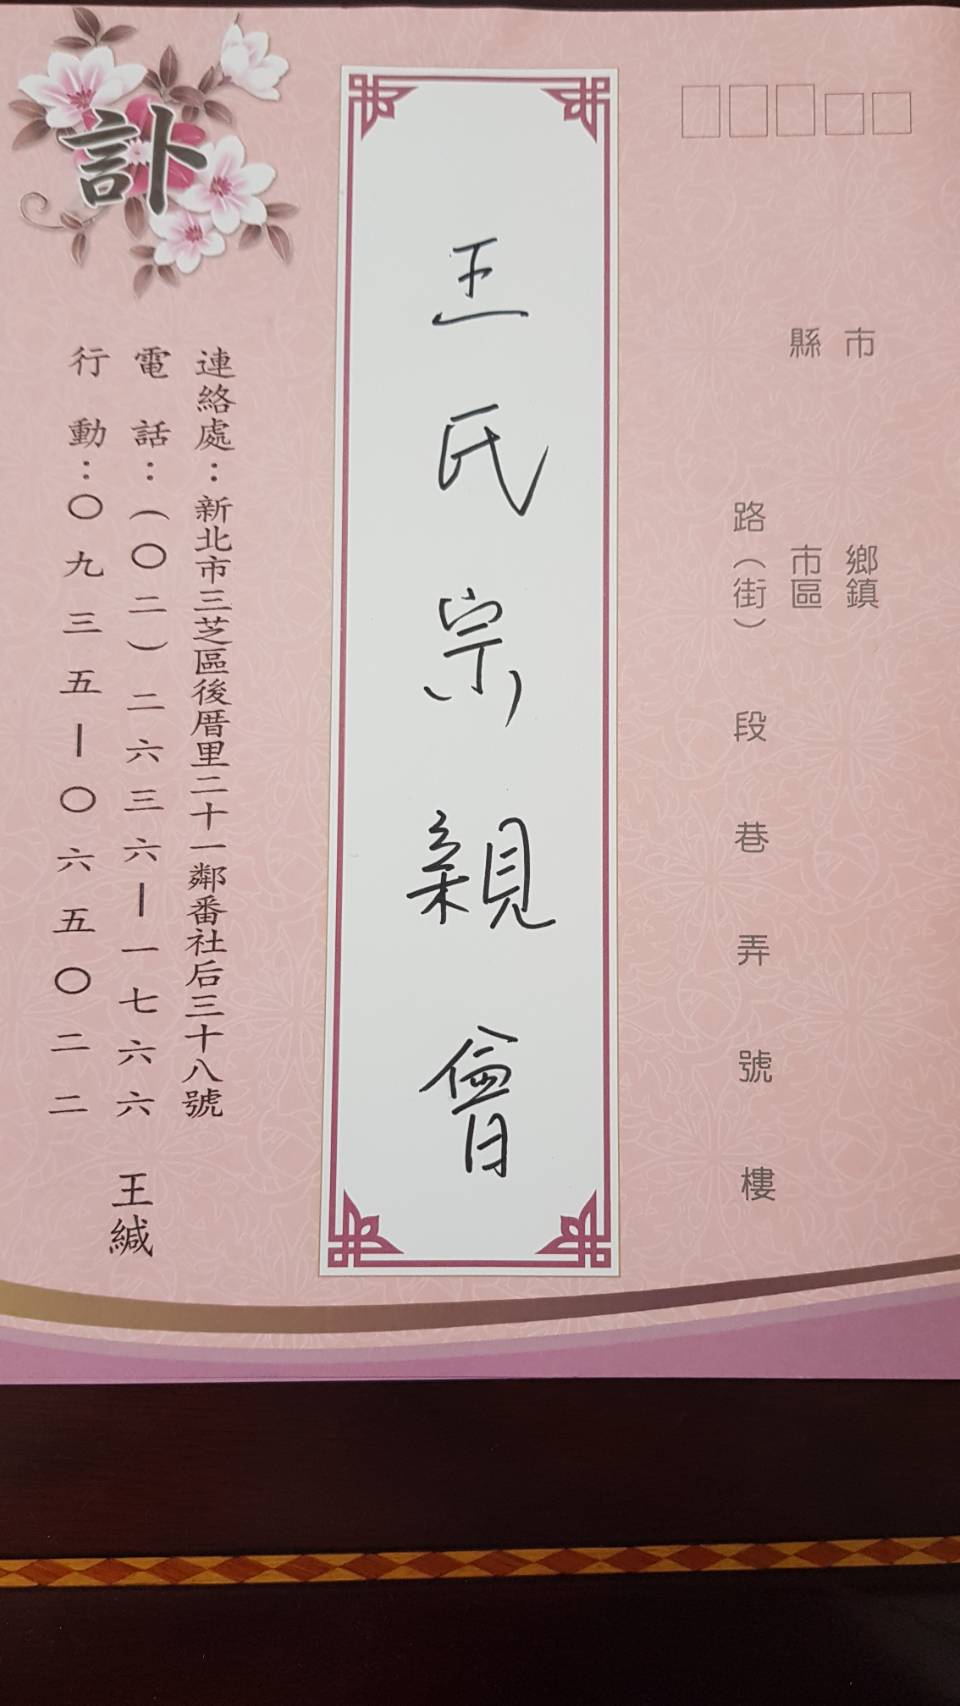 市
縣
鄉鎮
市區
路（街）段巷弄號樓
王氏宗親會
訃
連絡處：新北市三芝區後厝里二十一鄰番社后三十八號
電話：（〇二）二六三六－一七六六
王緘
行動：〇九三五－〇六五〇二二